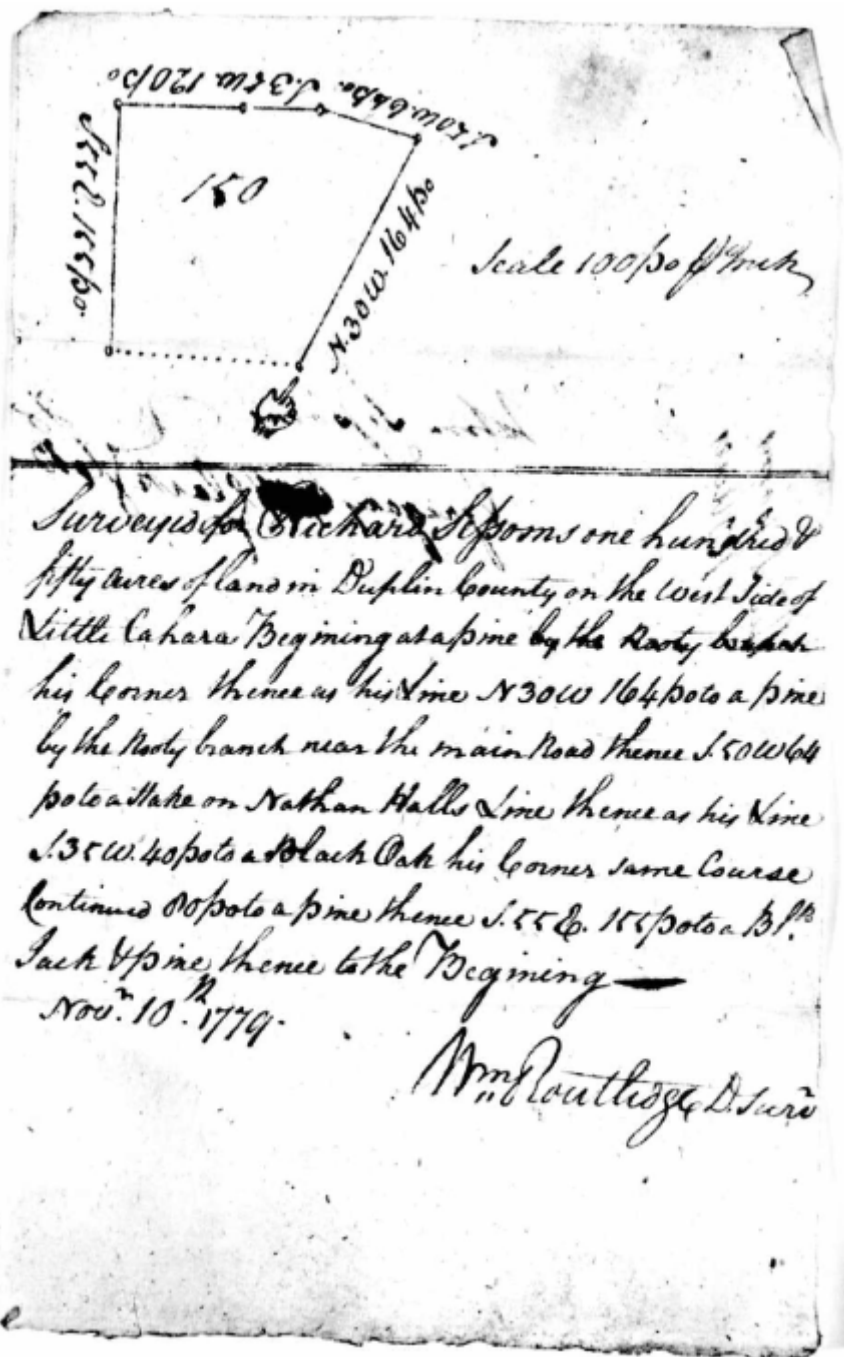 S.35W. 120po
S.50W. 64po.
S55E. 155po.
150
N.30W. 164po
Scale 100po Inch
Surveyed for Richard Sessoms one hundred &
fifty acres of land in Duplin County on the West Side of
Little Cahara Begining at a pine by the Rooty branch
his Corner thence as his Line N30W 164 po to a pine
by the Rooty branch near the main Road thence S.50W 64
po to a Stake on Nathan Halls Line thence as his Line
S.35W. 40 po to a Black Oak his Corner same Course
Continued 80 po to a pine thence S.55E. 155 po to a Blk
Jack & pine thence to the Begining —
Novr. 10th. 1779.
Wm Routlidge D. Surv